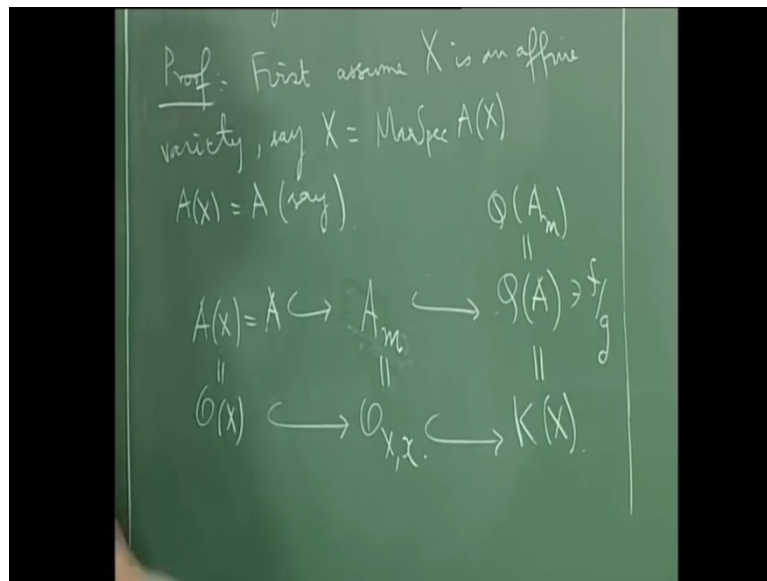 Proof: First assume X is an affine
variety, say X = MaxSpec A(X)
A(X) = A (say)
Q(A_m)
||
A(X) = A ↪ A_m ↪ Q(A) ∋ f/g
|| || ||
O(X) ↪ O_{X,x} ↪ K(X).